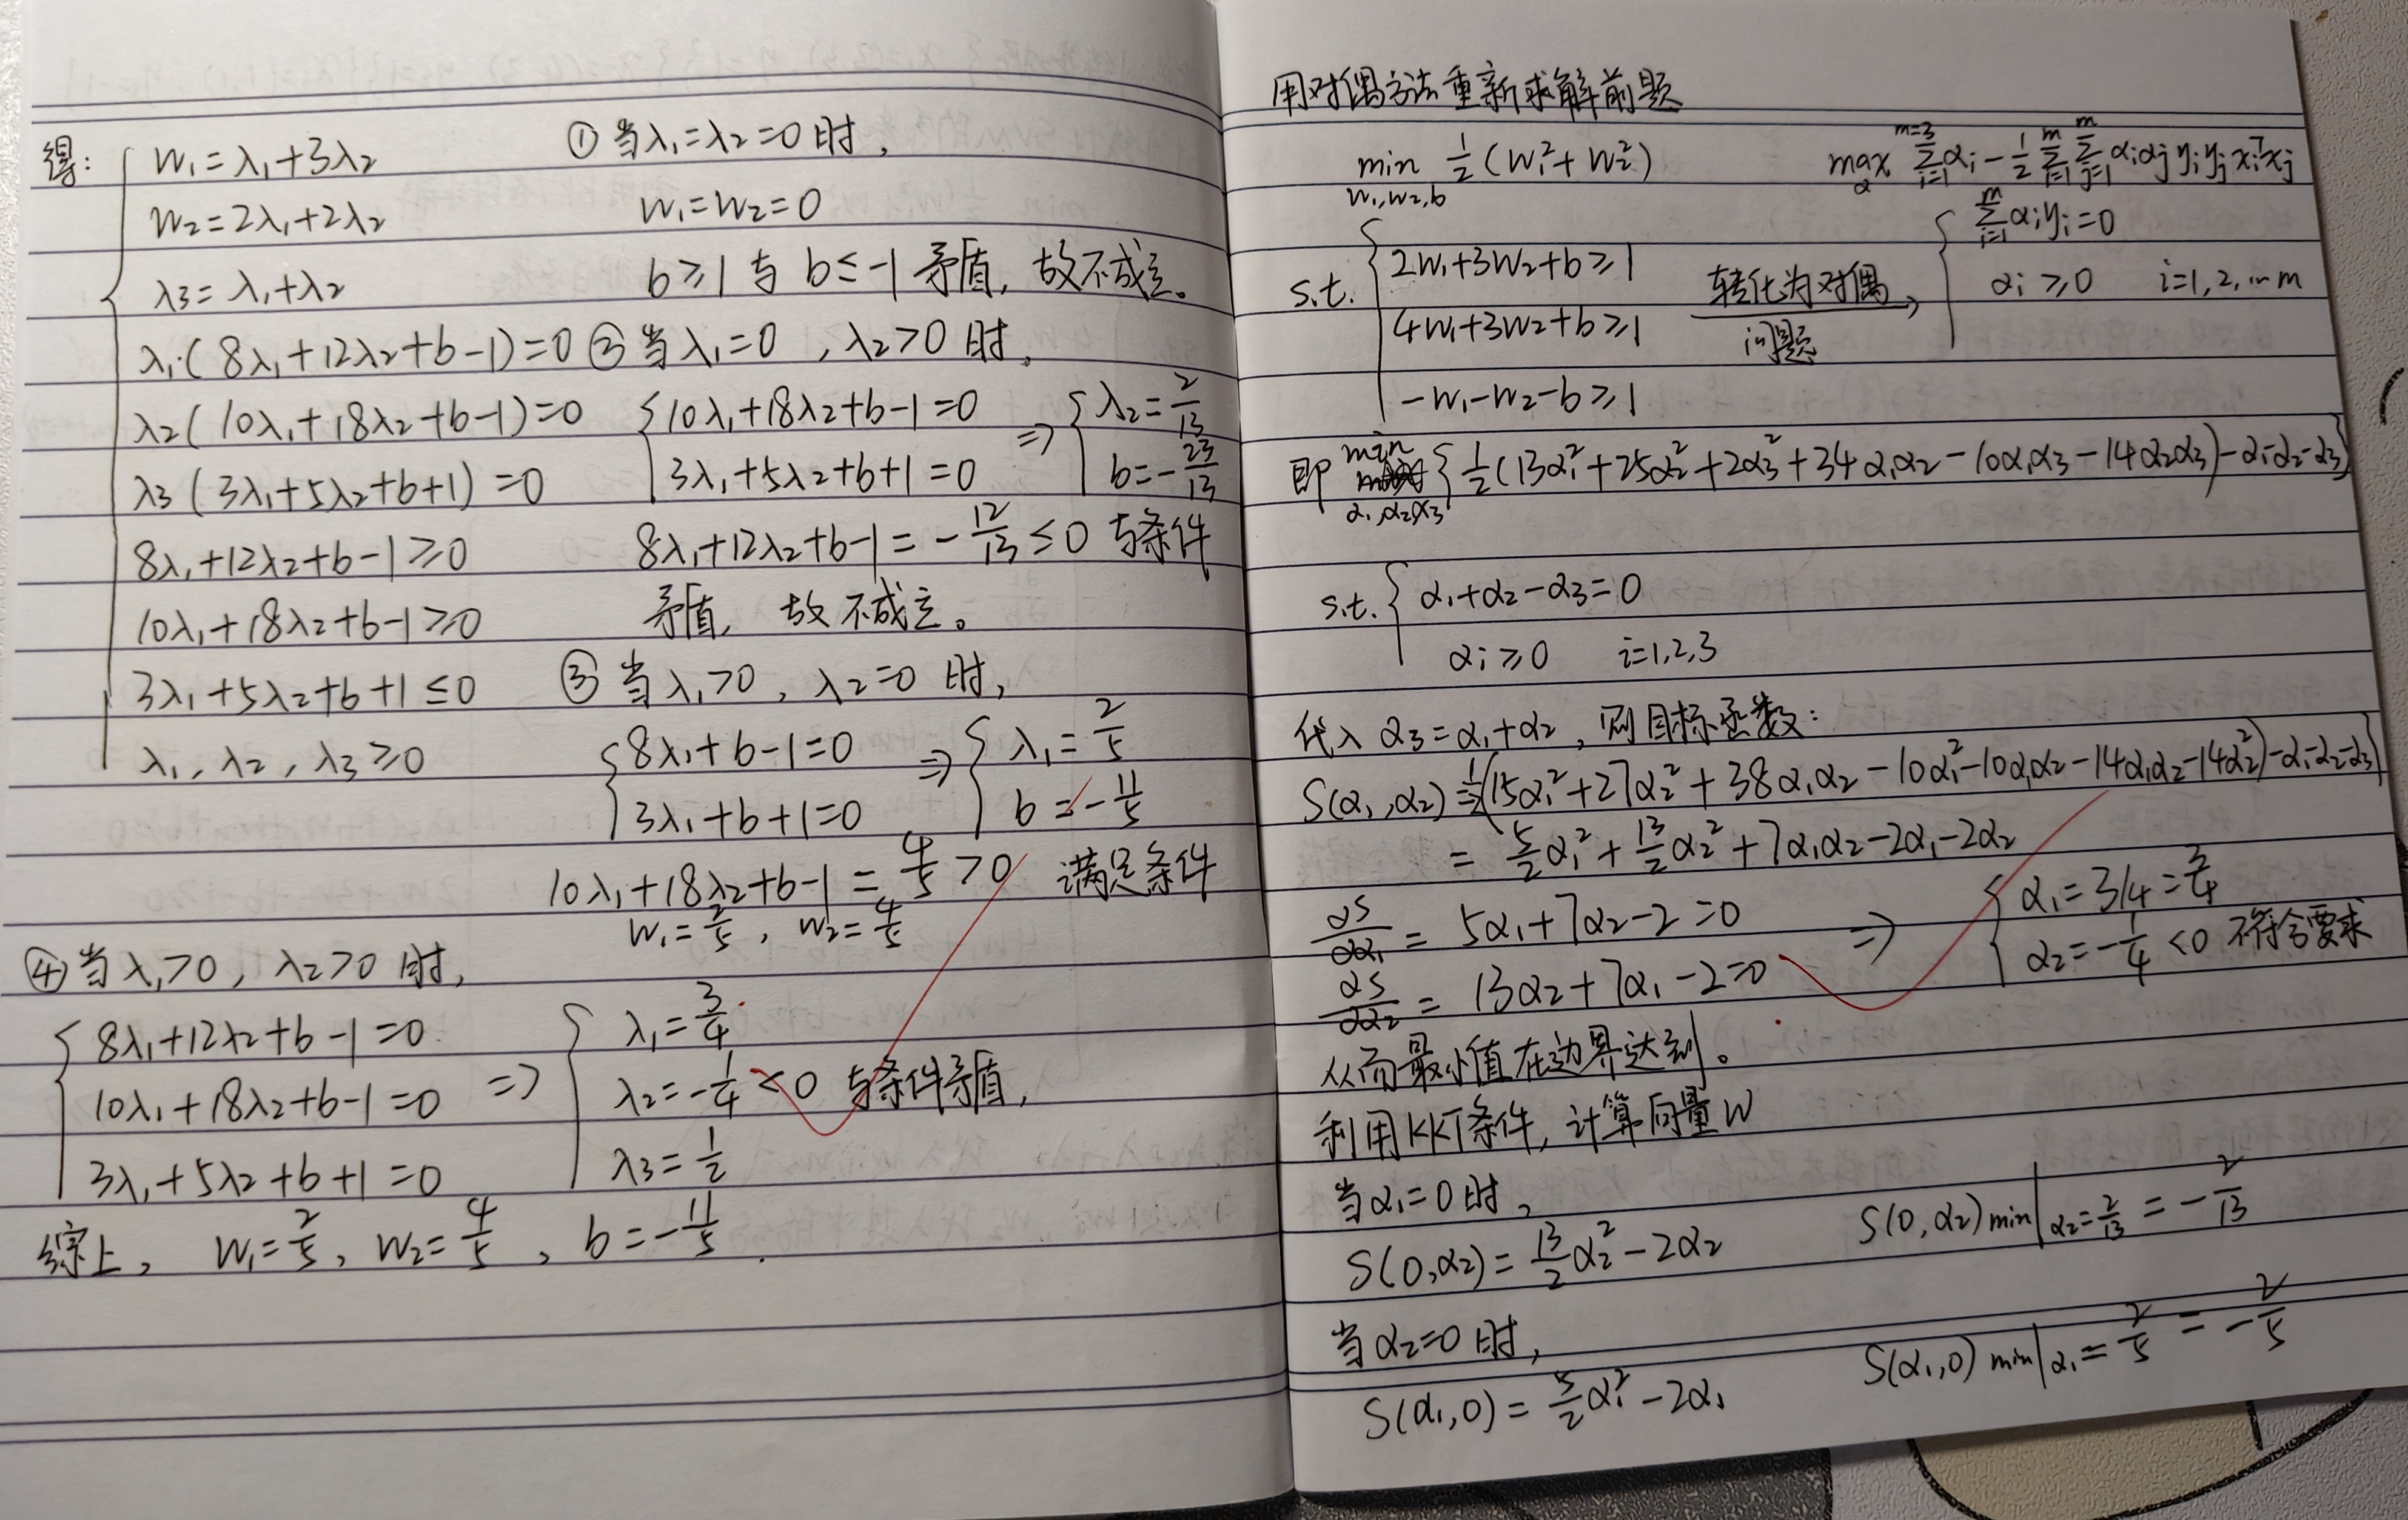 得: w₁=λ₁+3λ₂
w₂=2λ₁+2λ₂
λ₃=λ₁+λ₂
λ₁(8λ₁+12λ₂+b-1)=0
λ₂(10λ₁+18λ₂+b-1)=0
λ₃(3λ₁+5λ₂+b+1)=0
8λ₁+12λ₂+b-1≥0
10λ₁+18λ₂+b-1≥0
3λ₁+5λ₂+b+1≤0
λ₁,λ₂,λ₃≥0
①当λ₁=λ₂=0时,
w₁=w₂=0
b≥1与b≤-1矛盾,故不成立。
②当λ₁=0,λ₂>0时,
{10λ₁+18λ₂+b-1=0
3λ₁+5λ₂+b+1=0 ⇒ {λ₂=2/13
b=-23/13
8λ₁+12λ₂+b-1=-12/13≤0 与条件
矛盾,故不成立。
③当λ₁>0,λ₂=0时,
{8λ₁+b-1=0
3λ₁+b+1=0 ⇒ {λ₁=2/5
b=-11/5
10λ₁+18λ₂+b-1=4/5>0 满足条件
w₁=2/5, w₂=4/5
④当λ₁>0,λ₂>0时,
{8λ₁+12λ₂+b-1=0
10λ₁+18λ₂+b-1=0
3λ₁+5λ₂+b+1=0
⇒ {λ₁=3/4
λ₂=-1/4<0 与条件矛盾,
λ₃=1/2
综上, w₁=2/5, w₂=4/5, b=-11/5.
用对偶方法重新求解前题
min w₁,w₂,b ½(w₁²+w₂²)
s.t. {2w₁+3w₂+b≥1
4w₁+3w₂+b≥1
-w₁-w₂-b≥1
转化为对偶
问题
max α Σᵢ₌₁^{m=3} αᵢ - ½ Σᵢ₌₁^m Σⱼ₌₁^m αᵢαⱼyᵢyⱼxᵢᵀxⱼ
{Σᵢ₌₁^m αᵢyᵢ=0
αᵢ≥0 i=1,2,…m
即 min α₁,α₂,α₃ {½(13α₁²+25α₂²+2α₃²+34α₁α₂-10α₁α₃-14α₂α₃)-α₁-α₂-α₃}
s.t. {α₁+α₂-α₃=0
αᵢ≥0 i=1,2,3
代入α₃=α₁+α₂,则目标函数:
S(α₁,α₂)=½(15α₁²+27α₂²+38α₁α₂-10α₁²-10α₁α₂-14α₁α₂-14α₂²)-α₁-α₂-α₃}
=5/2α₁²+13/2α₂²+7α₁α₂-2α₁-2α₂
∂S/∂α₁=5α₁+7α₂-2=0
∂S/∂α₂=13α₂+7α₁-2=0
⇒ {α₁=3/4=3/4
α₂=-1/4<0 不符合要求
从而最小值在边界达到。
利用KKT条件,计算向量W
当α₁=0时,
S(0,α₂)=13/2α₂²-2α₂ S(0,α₂)min|α₂=2/13=-2/13
当α₂=0时,
S(α₁,0)=5/2α₁²-2α₁ S(α₁,0)min|α₁=2/5=-2/5